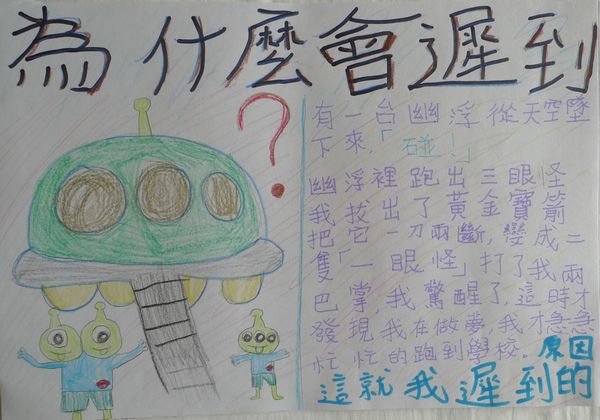 為什麼會遲到
?
有一台幽浮從天空墜
下來,「碰!」
幽浮裡跑出三眼怪
我找出了黃金寶箭
把它一刀兩斷,變成二
隻「一眼怪」打了我兩
巴掌,我驚醒了,這時才
發現我在做夢,我才急急
忙忙的跑到學校.
這就我遲到的原因